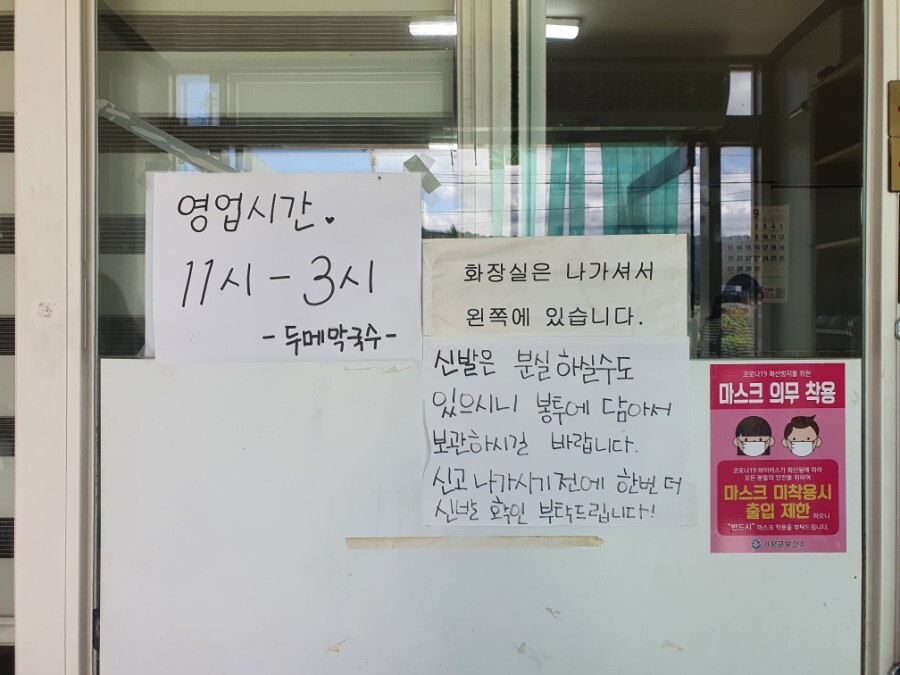 영업시간.
11시 - 3시
- 두메막국수 -
화장실은 나가셔서
왼쪽에 있습니다.
신발은 분실하실수도
있으시니 봉투에 담아서
보관하시길 바랍니다.
신고 나가시기전에 한번 더
신발 확인 부탁드립니다!
9
코로나19 확산방지를 위한
마스크 의무 착용
코로나19 바이러스가 확산됨에 따라
모든 분들의 안전을 위하여
마스크 미착용시
출입 제한 하오니
"반드시" 마스크 착용을 부탁드립니다.